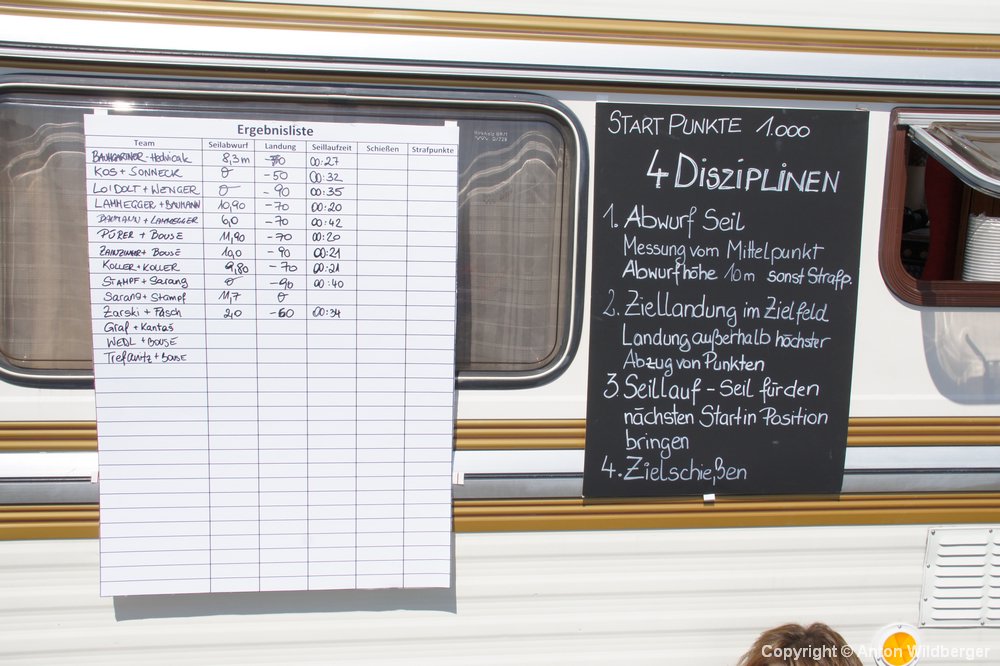 Ergebnisliste
Team Seilabwurf Landung Seillaufzeit Schießen Strafpunkte
BAUMGARTNER-Hedvicak 8,3m 00:27
KOS + SONNECK 0 -50 00:32
LOIDOLT + WENGER 0 -90 00:35
LAMMEGGER + BAUMANN 10,90 -70 00:20
BAUMANN + LAMMEGGER 6,0 -70 00:42
PÜRER + BOUSE 11,90 -70 00:20
ZAINZINGER + BOUSE 10,0 -90 00:21
KOLLER + KOLLER 9,80 -70 00:21
STAMPF + Sarang 0 -90 00:40
Sarang + Stampf 11,7 0
Zarski + Fasch 2,0 -60 00:34
Graf + Kantaš
WEDL + BOUSE
Tiefanitz + BOUSE
START PUNKTE 1.000
4 DISZIPLINEN
1. Abwurf Seil
Messung vom Mittelpunkt
Abwurfhöhe 10m sonst Strafp.
2. Ziellandung im Zielfeld
Landung außerhalb höchster
Abzug von Punkten
3. Seillauf - Seil für den
nächsten Start in Position
bringen
4. Zielschießen
Copyright © Anton Wildberger